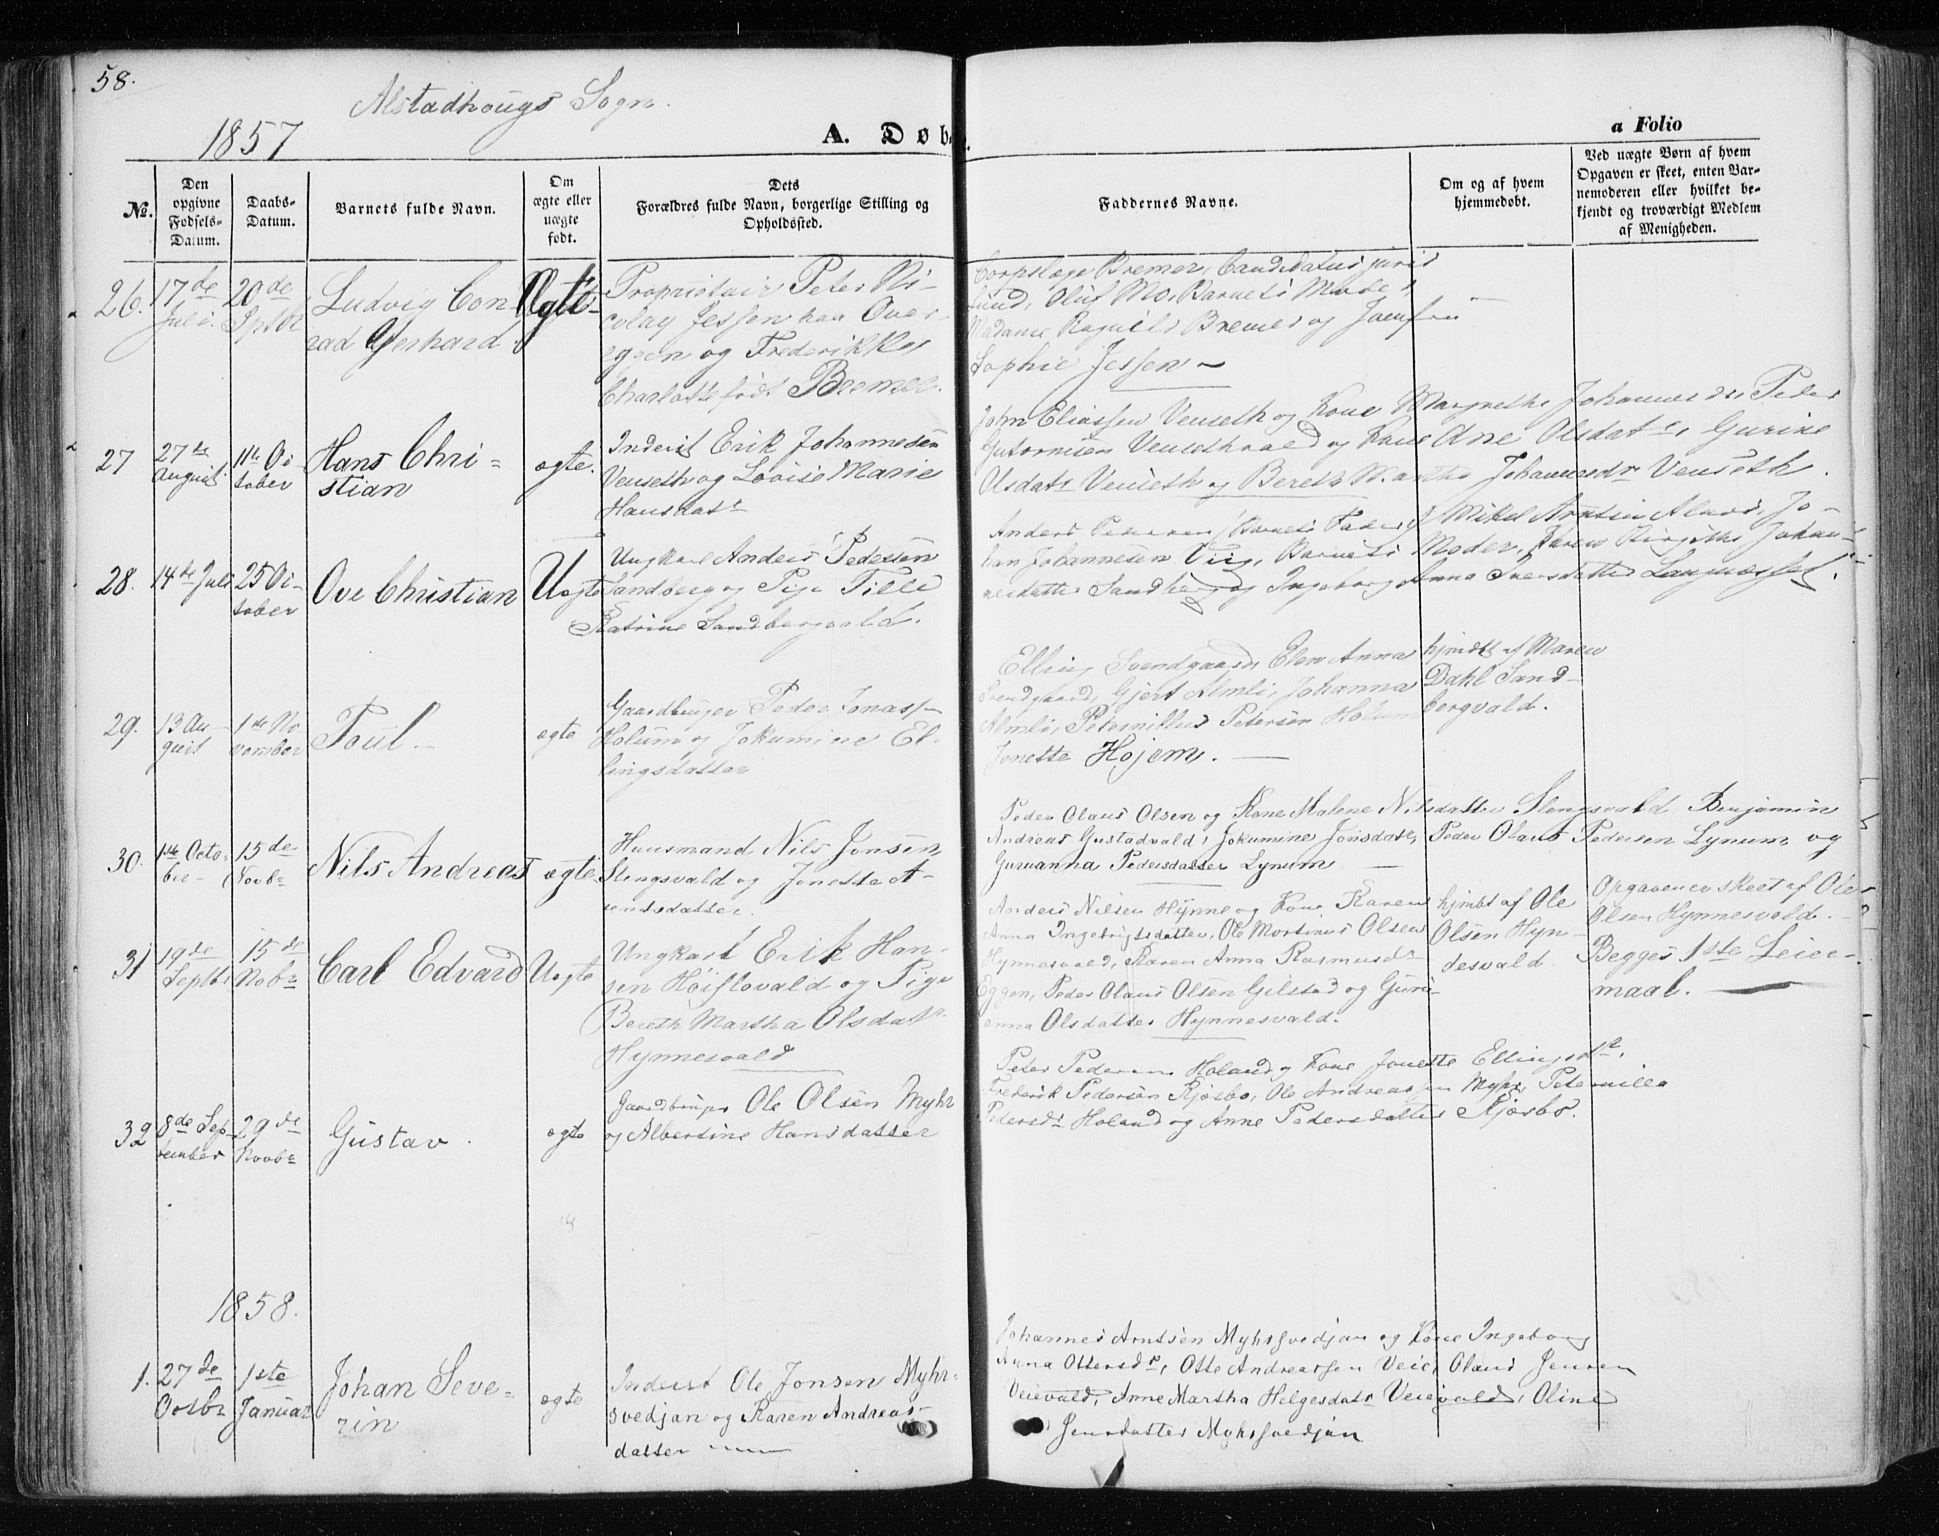 58.
Alstadhougs Sogn.
1857
A. Døbte.
a Folio
No.
Den opgivne Fødsels-Datum.
Daabs-Datum.
Barnets fulde Navn.
Om ægte eller uægte født.
Dets Forældres fulde Navn, borgerlige Stilling og Opholdssted.
Faddernes Navne.
Om og af hvem hjemmedøbt.
Ved uægte Børn af hvem Opgaven er skeet, enten Barnemoderen eller hvilket bekjendt og troværdigt Medlem af Menigheden.
26.
17de
Juli.
20de
Sptbr
Ludvig Con
rad Gerhard.
Ægte
Proprietair Peter Ni-
colay Jessen paa Over
eggen og Frederikke
Charlotte født Bremer.
Corpslæge Bremer, Candidatus juris
Lund, Oluf Mo, Barnets Moder,
Madame Ragnild Bremer og Jomfru
Sophie Jessen -
27
27de
August.
11te Oc
tober
Hans Chri-
stian
ægte.
Inderst Erik Johannesen
Venseth og Lovise Marie
Hansdatr
John Eliassen Venseth og Kone Margrethe Johannesdr Peder
Gutormsen Vensethvald og Kone Ane Olsdatr, Gurine
Olsdatr Venseth og Bereth Martha Johannesdr Venseth.
28.
14de Juli
25 Oc-
tober
Ove Christian
Uægte
Ungkarl Anders Pedersen
Sandberg og Pige Tille
Katrine Sandbergvald.
Anders Pedersen / Barnets Fader / Mikal Arntsen Alund, Jo-
han Johannesen Vig, Barnets Moder, Karen Birgithe Johan-
nesdatter Sandberg og Ingeborg Anna Iversdatter
29.
13 Au-
gust
1ste No
vember
Poul -
ægte
Gaardbruger Peder Jonassen
Holum og Jokumine El-
lingsdatter
Elling Svendgaard, Elen Anna
Svendgaard, Gjert Almli, Johanna
Almli, Petersen Holum
Jonette Hojem. -
hjmdbt af Maren
Dahl Sand-
bergvald.
30.
1ste Octo-
ber -
15de
Novbr
Nils Andreas
ægte
Huusmand Nils Jonsen
Slengsvald og Jonetta A-
rentsdatter.
Peder Olaus Olsen og Kone Malene Nilsdatter Slengsvald Benjamin
Andreas Gustadvald, Jokumine Jonsdatr, Peder Olaus Pedersen Lynum og
Gurianna Pedersdatter Lynum -
31
19de
Septbr
15de
Nobr
Carl Edvard
Uægte
Ungkarl Erik Han-
sen Höislovald og Pige
Bereth Martha Olsdatr
Hynnesvald
Anders Nilsen Hynne og Kone Karen
Anna Ingebrigtsdatter, Ole Mortinus Olsen
Hynnesvald, Karen Anna Rasmusdr
Eggen, Peder Olaus Olsen Gilstad og Guri-
anna Olsdatter Hynnesvald.
hjmbt af Ole
Olsen Hyn-
desvald.
Opgaven er skeet af Ole
Olsen Hynnesvald. -
Begges 1ste Leier-
maal. -
32
8de Sep-
tember
29de
Novbr
Gustav.
ægte
Gaardbruger Ole Olsen Myhr
og Albertine Hansdatter
Peter Pedersen Holand og Kone Jonette Ellingsdtr,
Frederik Pedersen Kjosbo, Ole Andreassen Myhr, Peternilla
Pedersdr Holand og Anne Pedersdatter Kjosbo.
1858.
1.
27de
Octbr
1ste
Januar
Johan Seve-
rin
ægte
Inderst Ole Jonsen Myhr-
svedjan og Karen Andreas-
datter
Johannes Arntsen Myhrsvedjan og Kone Ingeborg
Anna Ottersdr, Otte Andreassen Veie, Olaus Jensen
Veievald, Anne Martha Helgesdatr Veievald, Oline
Jensdatter Myhrsvedjan